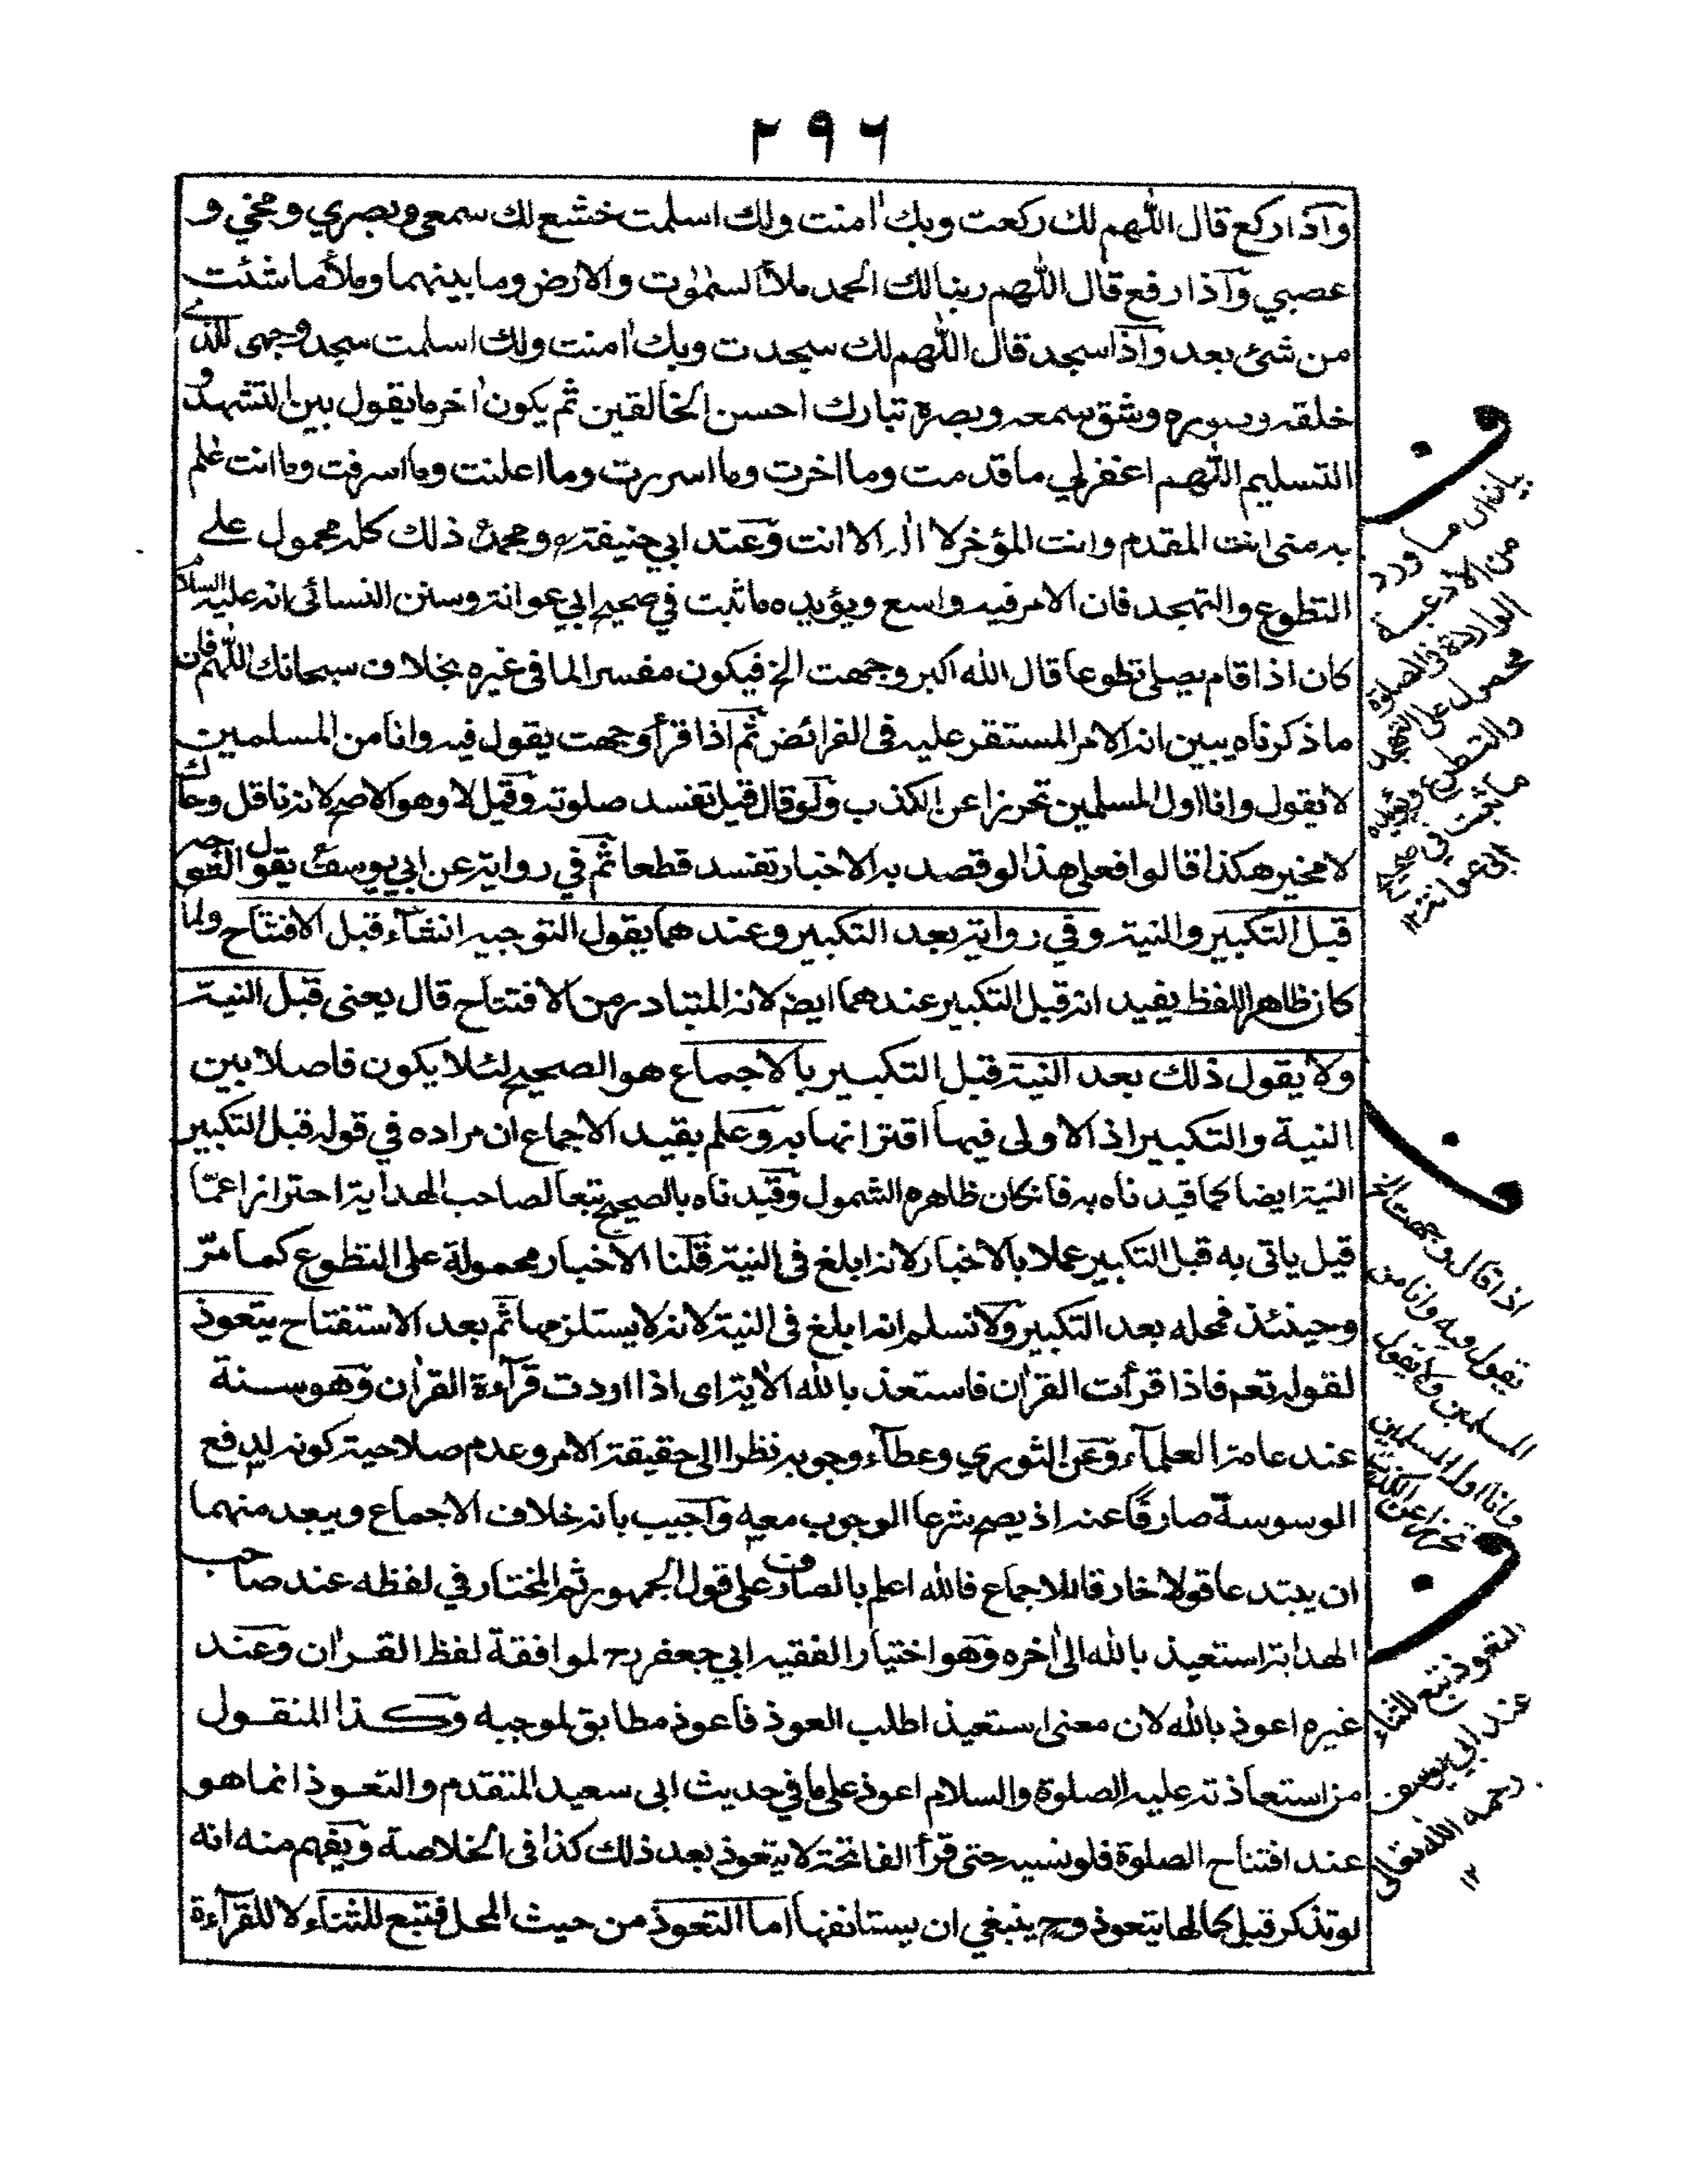 ٢٩٦
وآذا ركع قال اللهم لك ركعت وبك اٰمنت ولك اسلمت خشع لك سمعي وبصري ومخي و
عصبي وآذا رفع قال اللهم ربنا لك الحمد ملأ السمٰوٰت والارض وما بينهما وملأ ما شئت
من شئ بعد وآذا سجد قال اللهم لك سجدت وبك اٰمنت ولك اسلمت سجد وجهى للذي
خلقه وصوره وشق سمعه وبصره تبارك احسن الخالقين ثم يكون اٰخر ما يقول بين التشهد و
التسليم اللهم اغفرلي ما قدمت وما اخرت وما اسررت وما اعلنت وما اسرفت وما انت اعلم
به منى انت المقدم وانت المؤخر لا اله الا انت وعند ابي حنيفة ومحمد ذلك كله محمول على
التطوع والتهجد فان الامر فيه واسع ويؤيده ما ثبت في صحيح ابي عوانة وسنن النسائى انه عليه السلام
كان اذا قام يصلي تطوعا قال الله اكبر وجهت الخ فيكون مفسرا لما فى غيره بخلاف سبحانك اللهم فان
ما ذكرناه يبين انه الامر المستقر عليه فى الفرائض ثم اذا قرأ وجهت يقول فيه وانا من المسلمين
لا يقول وانا اول المسلمين تحرزا عن الكذب ولو قال قيل تفسد صلوته وقيل لا وهو الاصح لانه ناقل وحاك
لا مخبر هكذا قالوا فعلى هذا لو قصد به الاخبار تفسد قطعا ثم في رواية عن ابي يوسف يقول التوجه
قبل التكبير والنية وفي رواية بعد التكبير وعندهما يقول التوجيه انشاء قبل الافتتاح ولما
كان ظاهر اللفظ يفيد انه قبل التكبير عندهما ايضا لانه المتبادر من الافتتاح قال يعنى قبل النية
ولا يقول ذلك بعد النية قبل التكبير بالاجماع هو الصحيح لئلا يكون فاصلا بين
النية والتكبير اذ الاولى فيها اقترانها به وعلم بقيد الاجماع ان مراده في قوله قبل التكبير
النية ايضا كما قيدناه به فانه كان ظاهره الشمول وقيدناه بالصحيح تبعا لصاحب الهداية احترازا عمّا
قيل ياتى به قبل التكبير عملا بالاخبار لانه ابلغ فى النية قلنا الاخبار محمولة على التطوع كما مرّ
وحينئذ فمحله بعد التكبير ولا نسلم انه ابلغ فى النية لانه لا يستلزمها ثم بعد الاستفتاح يتعوذ
لقوله تعم فاذا قرأت القراٰن فاستعذ بالله الاٰية اى اذا اردت قرآءة القراٰن وهو سنة
عند عامة العلمآء وعن الثوري وعطآء وجوبه نظرا الى حقيقة الامر وعدم صلاحية كونه لدفع
الوسوسة صارفًا عنه اذ يصح شرعا الوجوب معه وآجيب بانه خلاف الاجماع ويبعد منهما
ان يبتدعا قولا خارقا للاجماع فالله اعلم بالصارف على قول الجمهور ثم المختار في لفظه عند صاحب
الهداية استعيذ بالله الى اٰخره وهو اختيار الفقيه ابي جعفر رح لموافقة لفظ القراٰن وعند
غيره اعوذ بالله لان معنى استعيذ اطلب العوذ فاعوذ مطابق لموجبه وكذا المنقول
من استعاذته عليه الصلوة والسلام اعوذ على ما في حديث ابى سعيد المتقدم والتعوذ انما هو
عند افتتاح الصلوة فلو نسيه حتى قرأ الفاتحة لا يتعوذ بعد ذلك كذا فى الخلاصة ويفهم منه انه
لو تذكر قبل كمالها يتعوذ وح ينبغي ان يستانفها اما التعوذ من حيث المحل فتبع للثناء لا للقرآءة
ف
بيان ان ما ورد
من الادعية
الواردة فى الصلوة
محمول على التهجد
والتطوع ويؤيده
ما ثبت في صحيح
ابى عوانة ١٢
ف
اذا قال وجهت الخ
يقول فيه وانا من
المسلمين ولا يقول
وانا اول المسلمين
تحرزا عن الكذب
ف
التعوذ تبع للثناء
عند ابي يوسف
رحمه الله تعالى
١٢